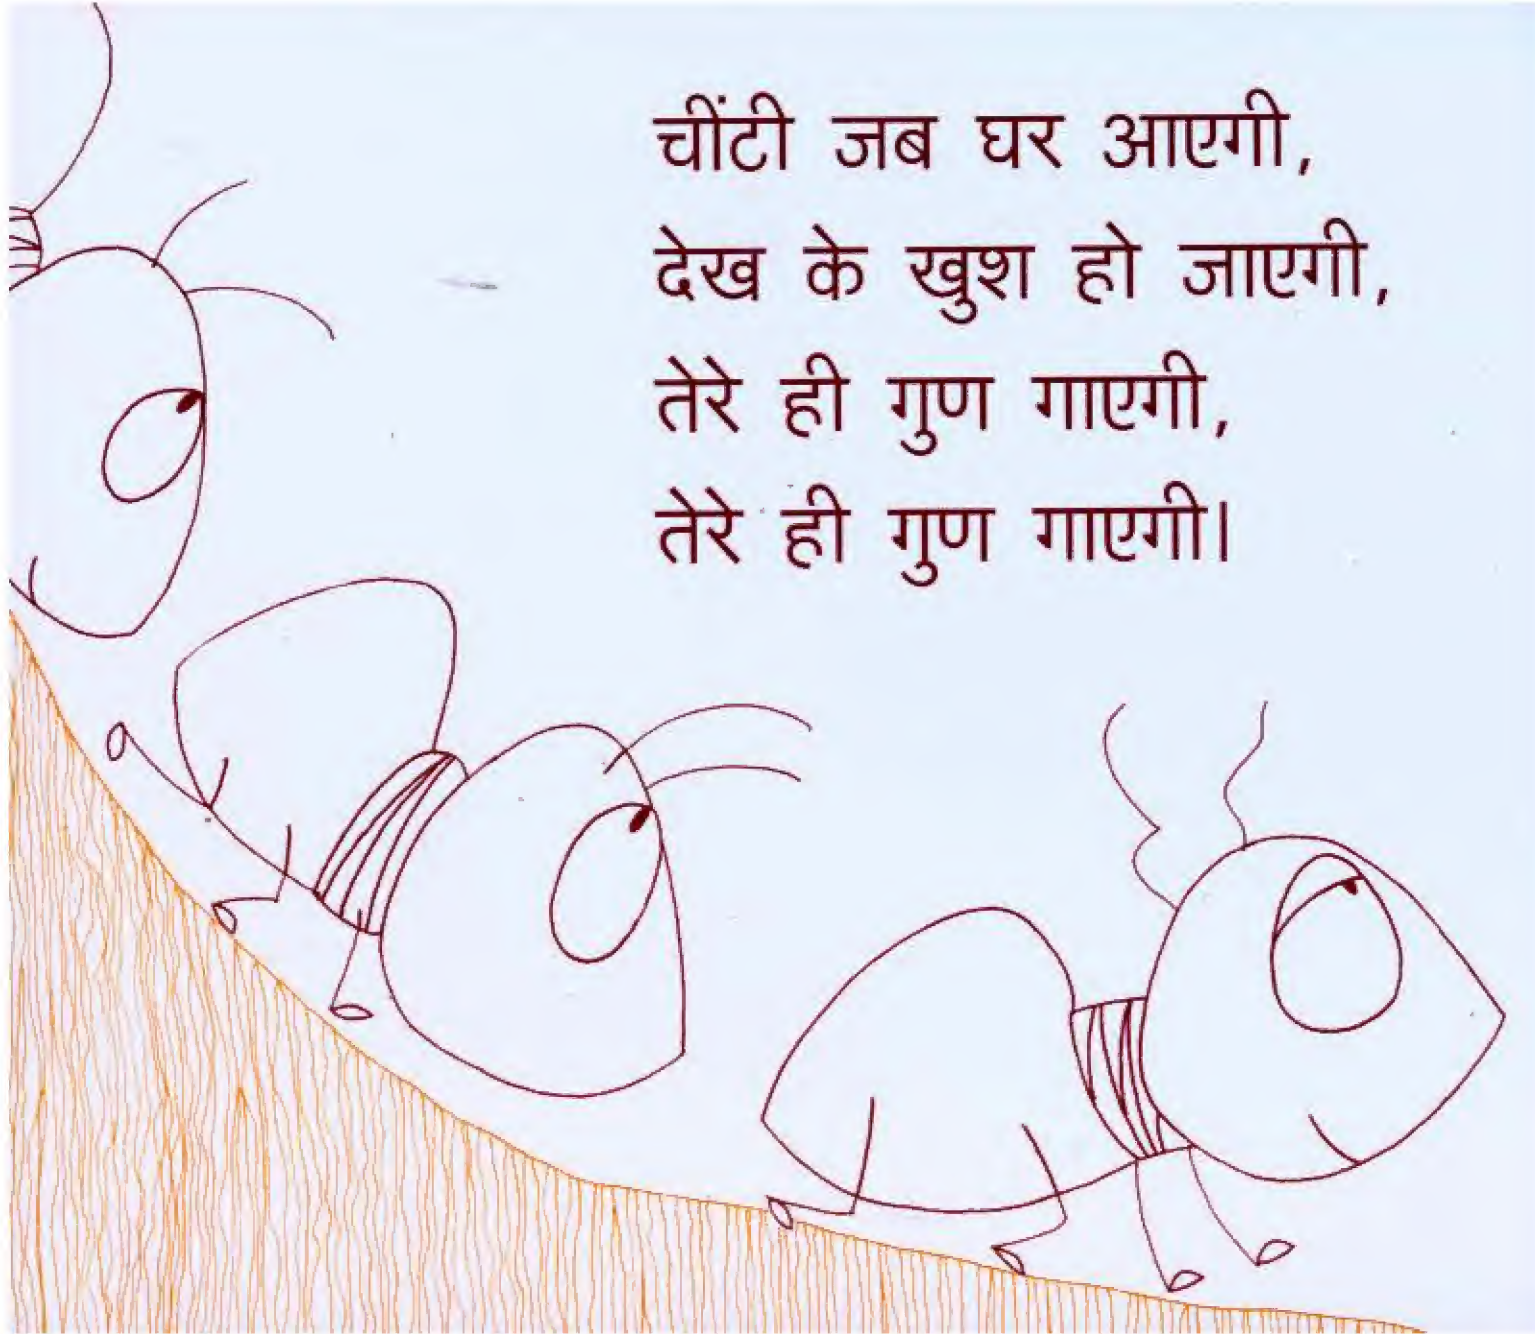 चींटी जब घर आएगी,
देख के खुश हो जाएगी,
तेरे ही गुण गाएगी,
तेरे ही गुण गाएगी।